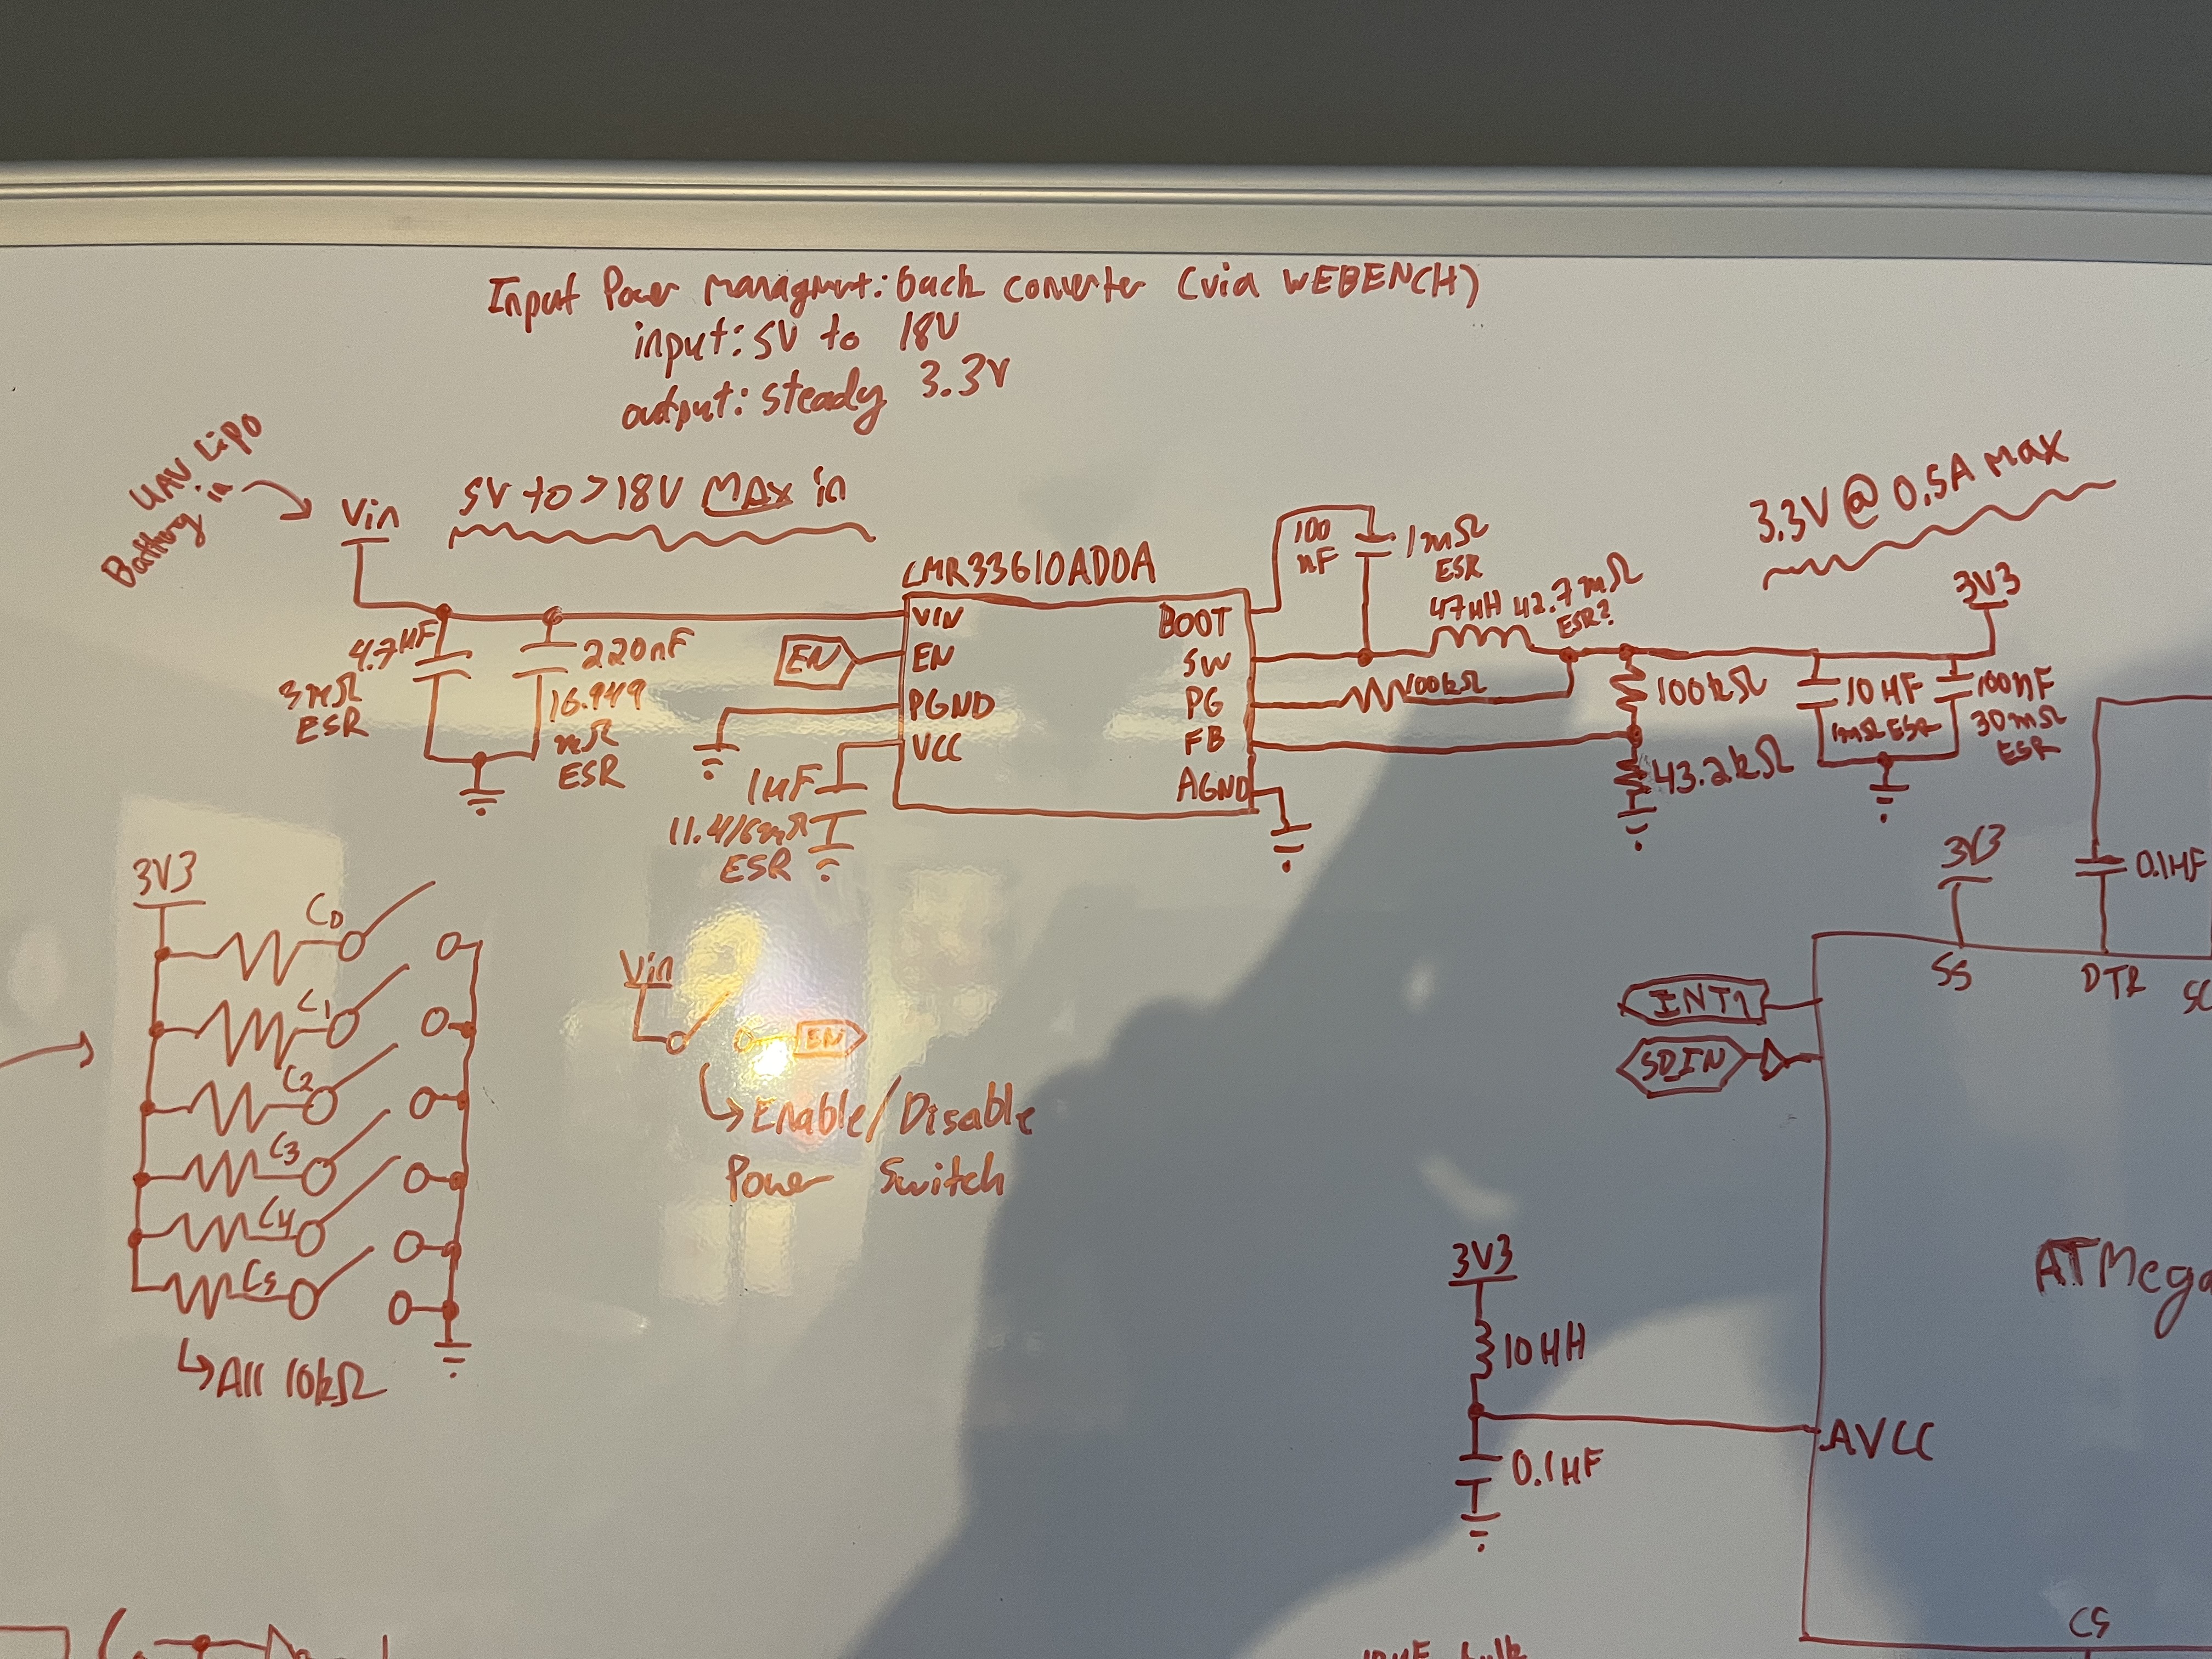 Input Power managment: buck converter (via WEBENCH)
input: 5V to 18V
output: steady 3.3V
UAV Lipo
Battery in
Vin
5V to >18V MAX in
3.3V @ 0.5A Max
LMR33610ADDA
VIN
EN
PGND
VCC
BOOT
SW
PG
FB
AGND
EN
4.7µF
3mΩ
ESR
220nF
16.949
mΩ
ESR
1µF
ESR
100
nF
1mΩ
ESR
47µH 42.7mΩ
ESR?
100kΩ
100kΩ
43.2kΩ
10µF
1mΩ ESR
100nF
30mΩ
ESR
3V3
3V3
C0
C1
C2
C3
C4
C5
↳All 10kΩ
Vin
EN
↳Enable/Disable
Power Switch
3V3
0.1µF
SS
DTR
SC
INT1
SDIN
ATMega
3V3
10µH
AVCC
0.1µF
CS